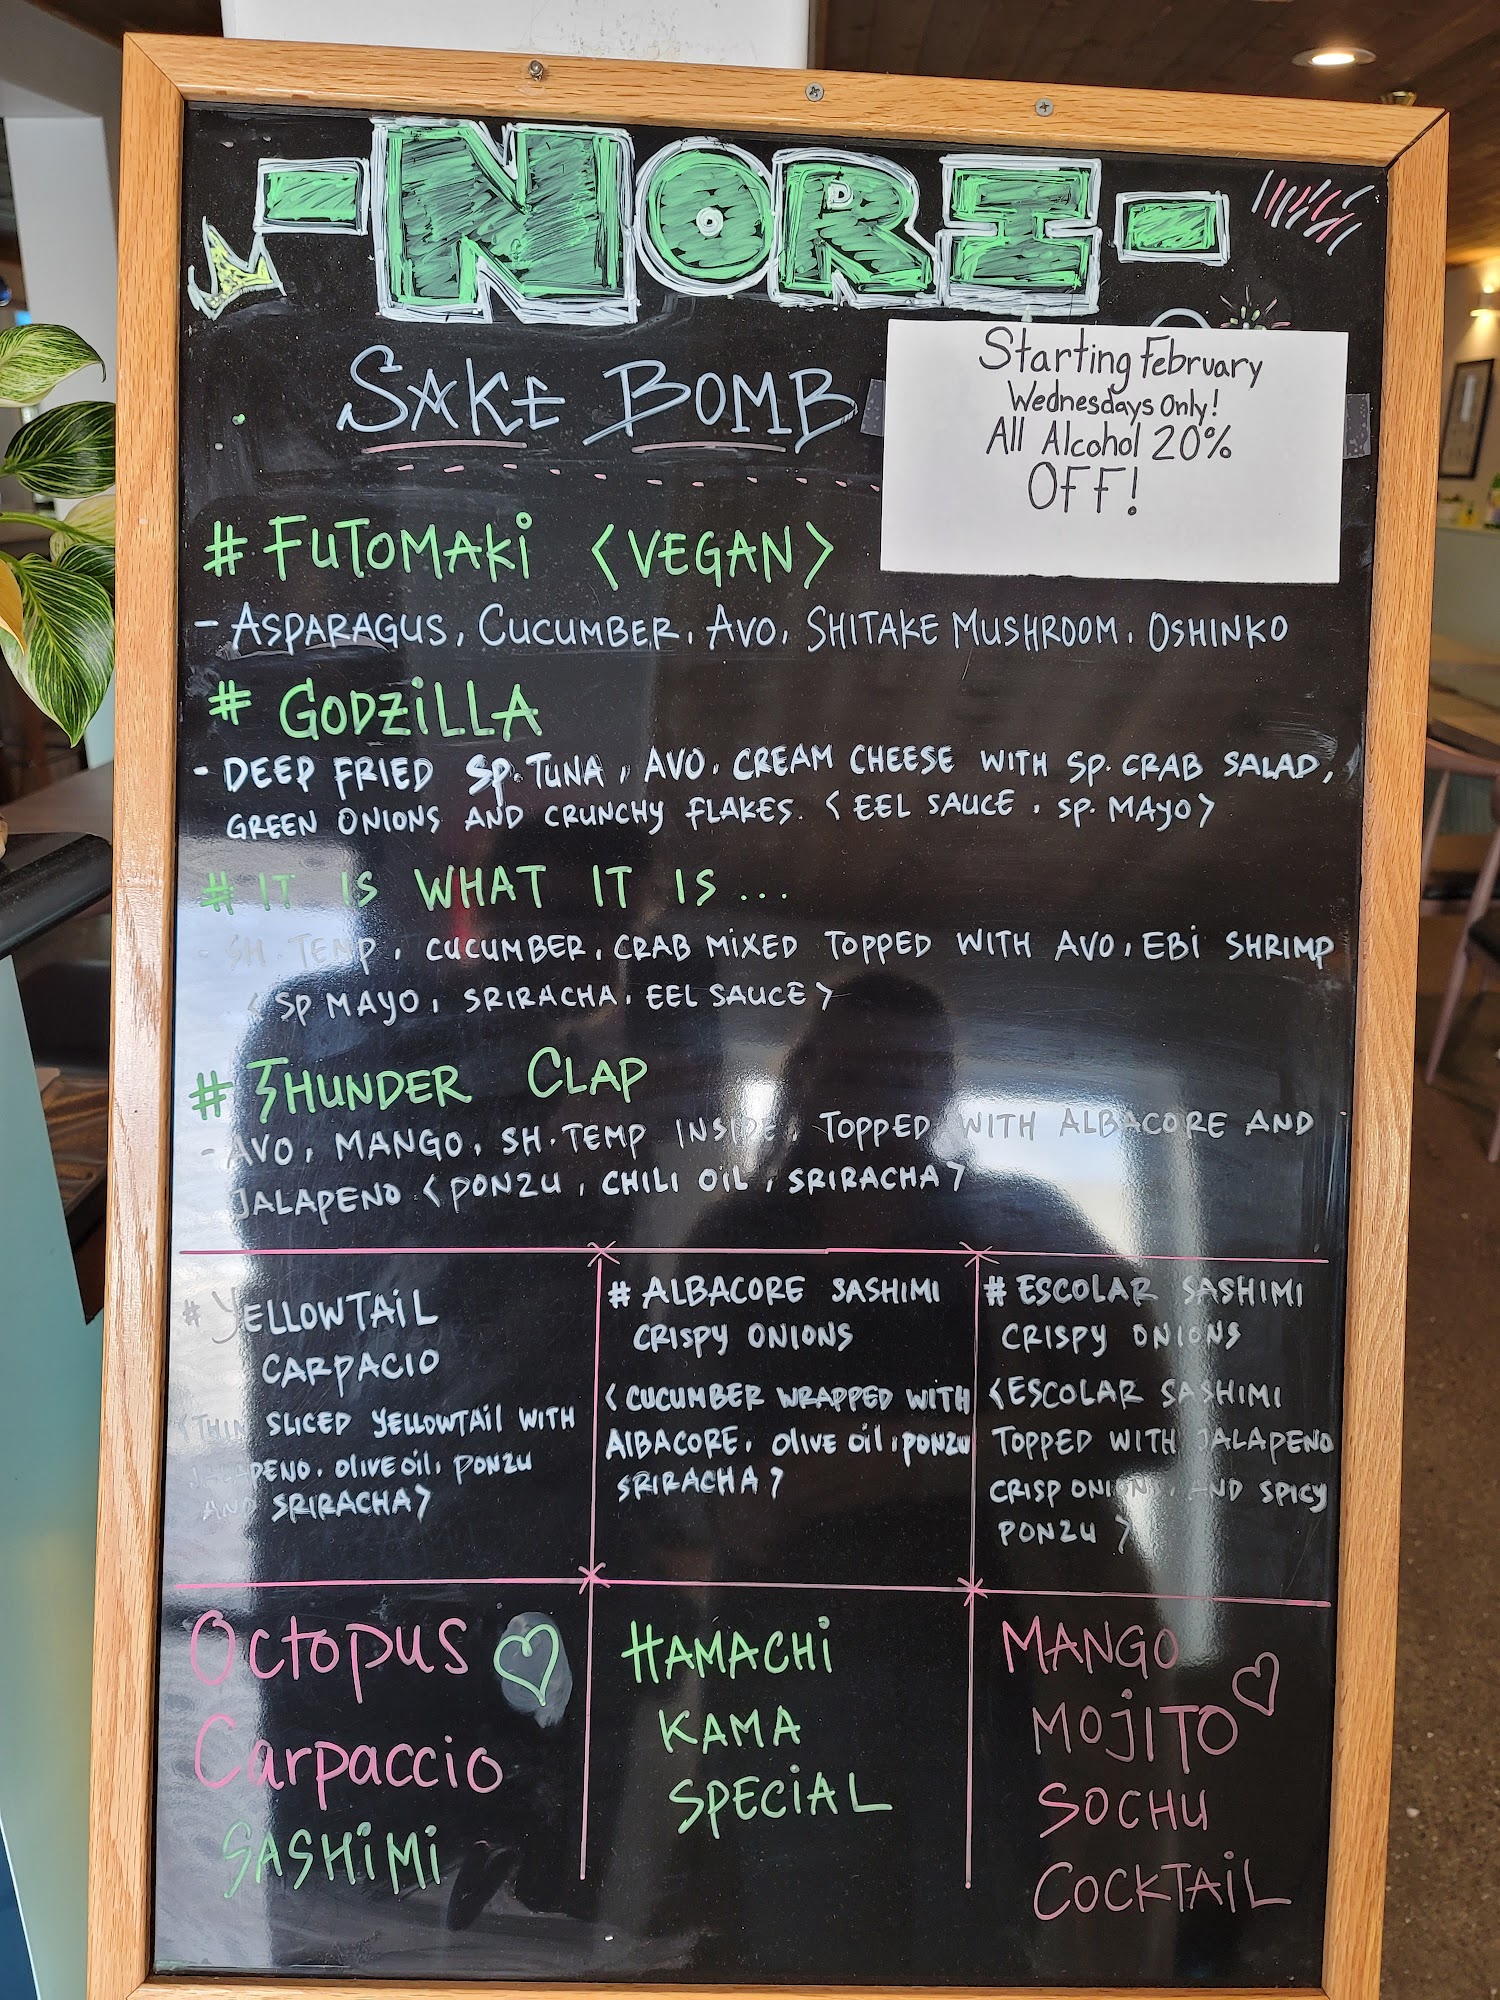 - NORI -
SAKE BOMB
Starting February
Wednesdays Only!
All Alcohol 20%
OFF!
# FUTOMAKI <VEGAN>
- ASPARAGUS, CUCUMBER, AVO, SHITAKE MUSHROOM, OSHINKO
# GODZILLA
- DEEP FRIED SP. TUNA, AVO, CREAM CHEESE WITH SP. CRAB SALAD,
GREEN ONIONS AND CRUNCHY FLAKES. <EEL SAUCE, SP. MAYO>
# IT IS WHAT IT IS...
- SH. TEMP, CUCUMBER, CRAB MIXED TOPPED WITH AVO, EBI SHRIMP
<SP MAYO, SRIRACHA, EEL SAUCE>
# THUNDER CLAP
- AVO, MANGO, SH. TEMP INSIDE, TOPPED WITH ALBACORE AND
JALAPENO <PONZU, CHILI OIL, SRIRACHA>
# YELLOWTAIL
CARPACIO
<THIN SLICED YELLOWTAIL WITH
JALAPENO, OLIVE OIL, PONZU
AND SRIRACHA>
# ALBACORE SASHIMI
CRISPY ONIONS
<CUCUMBER WRAPPED WITH
AlBACORE, Olive Oil, PONZU
SRIRACHA>
# ESCOLAR SASHIMI
CRISPY ONIONS
<ESCOLAR SASHIMI
TOPPED WITH JALAPENO
CRISP ONION, AND SPICY
PONZU>
Octopus
Carpaccio
SASHIMI
HAMACHI
KAMA
SPECIAL
MANGO
MOJITO
SOCHU
COCKTAIL